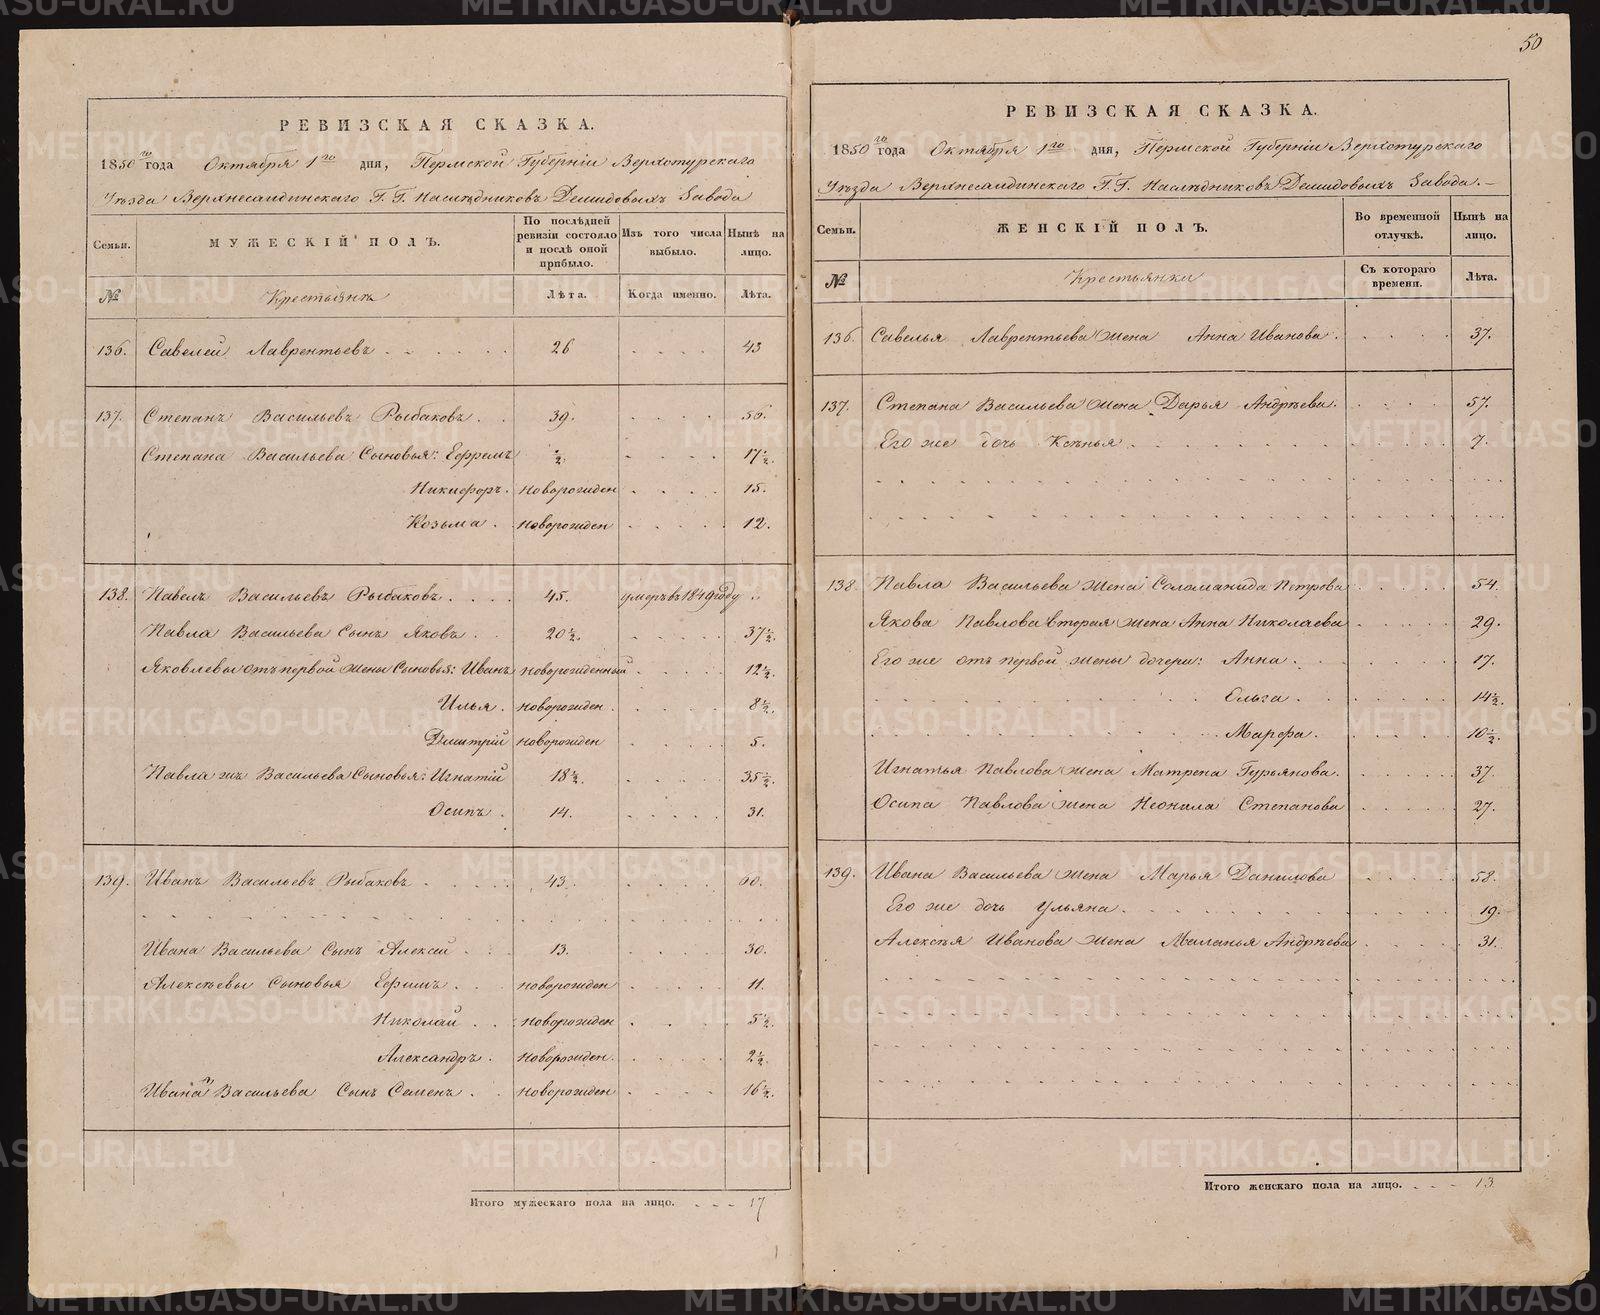 50
РЕВИЗСКАЯ СКАЗКА.
1850го года Октября 1го дня, Пермской Губернiи Верхотурскаго
Уѣзда Верхнесалдинскаго Г. Г. Наслѣдниковъ Демидовыхъ Завода
Семьи. МУЖЕСКIЙ ПОЛЪ. По послѣдней ревизiи состояло и послѣ оной прибыло. Изъ того числа выбыло. Нынѣ на лицо.
№ Крестьянъ Лѣта. Когда именно. Лѣта.
136. Савелей Лаврентьевъ 26 43
137. Степанъ Васильевъ Рыбаковъ 39. 56.
Степана Васильева Сыновья: Ефремъ ½ 17½.
Никифоръ. новорожден 15.
Козьма. новорожден 12.
138. Павелъ Васильевъ Рыбаковъ 45. умеръ въ 1849 году
Павла Васильева Сынъ Яковъ 20½. 37½.
Яковлевы отъ первой жены Сыновья: Иванъ новорожденный 12½.
Илья. новорожден 8½.
Дмитрiй новорожден 5.
Павла жъ Васильева Сыновья: Игнатiй 18½. 35½.
Осипъ. 14. 31.
139. Иванъ Васильевъ Рыбаковъ 43. 60.
Ивана Васильева Сынъ Алексей 13. 30.
Алексѣевы Сыновья Ефимъ новорожден 11.
Николай новорожден 5½.
Александръ. новорожден. 2½.
Ивана Васильева Сынъ Семенъ новорожден 16½.
Итого мужескаго пола на лицо. 17
РЕВИЗСКАЯ СКАЗКА.
1850го года Октября 1го дня, Пермской Губернiи Верхотурскаго
Уѣзда Верхнесалдинскаго Г. Г. Наслѣдниковъ Демидовыхъ Завода.
Семьи. ЖЕНСКIЙ ПОЛЪ. Во временной отлучкѣ. Нынѣ на лицо.
№ Крестьянки Съ котораго времени. Лѣта.
136. Савелья Лаврентьева жена Анна Иванова. 37.
137. Степана Васильева жена Дарья Андрѣева. 57.
Его же дочь Ксѣнья 7.
138. Павла Васильева жена Соломанида Петрова 54.
Якова Павлова вторая жена Анна Николаева 29.
Его же отъ первой жены дочери: Анна. 17.
Ольга. 14½.
Марфа. 10½.
Игнатья Павлова жена Матрена Гурьянова. 37.
Осипа Павлова жена Неонила Степанова 27.
139. Ивана Васильева жена Марья Данилова 58.
Его же дочь Ульяна. 19.
Алексѣя Иванова жена Маланья Андрѣева 31.
Итого женскаго пола на лицо. 13.
METRIKI.GASO-URAL.RU